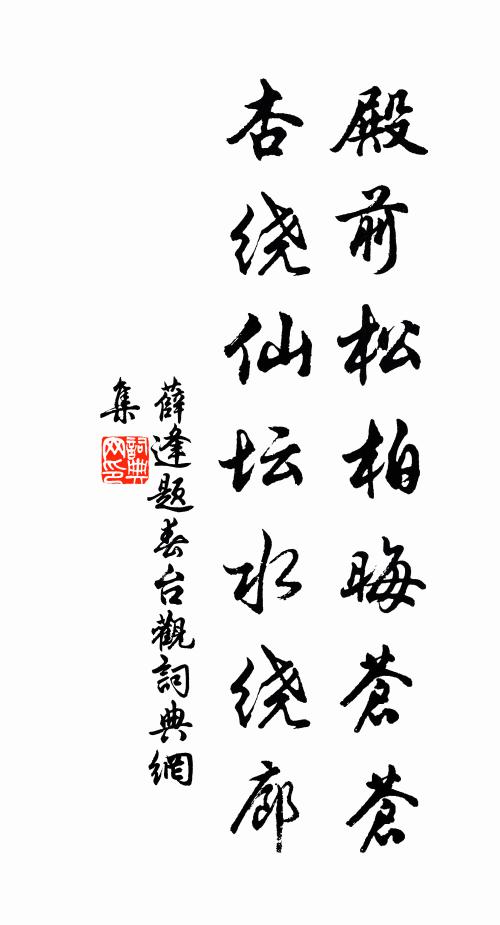 殿前松柏晦蒼蒼
杏绕仙坛水绕廊
薛逢题春台觀詞典網
集
詞典
网印